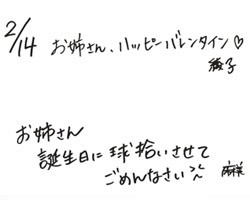 2/14 お姉さん、ハッピーバレンタイン♡
綾子
お姉さん
誕生日に球拾いさせて
ごめんなさい